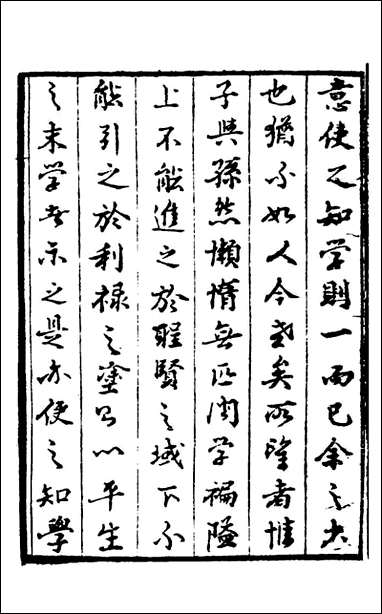 意使之知学則一而已余之大
也猶不如人今老矣所望者惟
子與孫然懶惰無匹聞学褊隘
上不能進之於聖賢之域下不
能引之於利禄之塗乃以平生
之末学者示之是亦使之知學